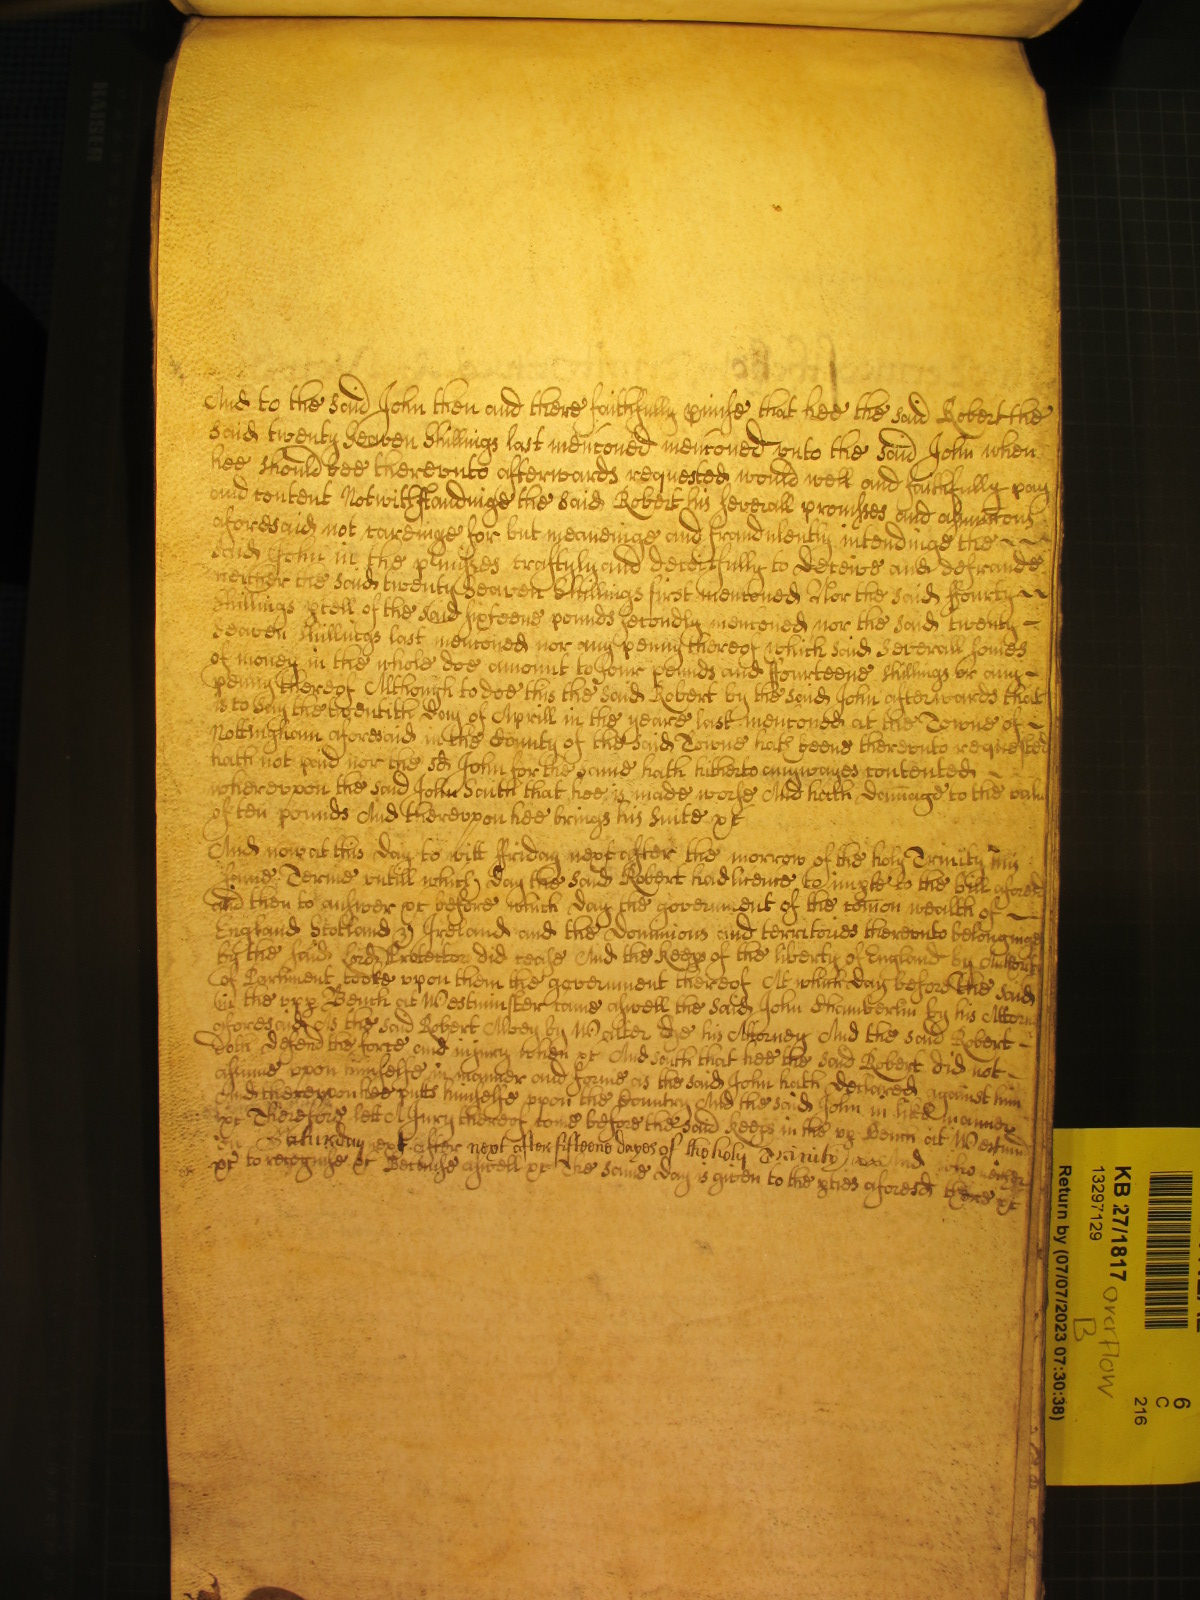 And to the said John then and there faithfully pmise that hee the said Robert the
said twenty seaven shillings last menconed menconed unto the said John when
hee should bee thereunto afterwards requested would well and faithfully pay
and content Notwithstandinge the said Robert his severall promises and assumcons
aforesaid not careinge for but meaneinge and fraudulently intendinge the
said John in the pmisses craftyly and deceitfully to deceive and defraude
neither the said twenty seaven shillings first menconed Nor the said ffourty
shillings pcell of the said sixteene pounds secondly menconed nor the said twenty
seaven shillings last menconed nor any penny thereof which said severall somes
of money in the whole doe amount to four pounds and ffourteene shillings or any
penny thereof Although to doe this the said Robert by the said John afterwards that
is to say the twentith day of Aprill in the yeare last menconed at the Towne of
Nottingham aforesaid in the County of the said Towne hath beene thereunto requested
hath not paid nor the sd John for the same hath hitherto anywayes contented
whereupon the said John Saith that hee is made worse And hath damage to the valu
of ten pounds And thereupon hee brings his suite &c
And now at this day to witt ffriday next after the morrow of the holy Trinity this
same Terme untill which day the said Robert had licence to imple to the bill aforesd
and then to answer &c before which day the government of the comon wealth of
England Scotland & Ireland and the Dominions and territories thereunto belonginge
by the said Lord Protector did cease And the Keeps of the liberty of England by Authority
of Parliment tooke upon them the government thereof At which day before the said
in the upp Bench at Westminster came aswell the said John Chamberlin by his Attorn
aforesaid as the said Robert by his Attorney And the said Robert
doth defend the force and injury when &c And saith that hee the said Robert did not
assume upon himselfe in manner and forme as the said John hath declared against him
And thereupon hee putts himselfe upon the Country And the said John in like manner
&c Therefore lett A Jury thereof come before the said Keeps in the upp Bench at Westmin
on Saturday next after next after fifteene dayes of the holy Trinity And who neither
&c to recognise &c Because aswell &c The same day is given to the pties aforesd there &c
KAISER
KB 27/1817
13297129
Return by (07/07/2023 07:30:38)
overflow
B
6
C
216